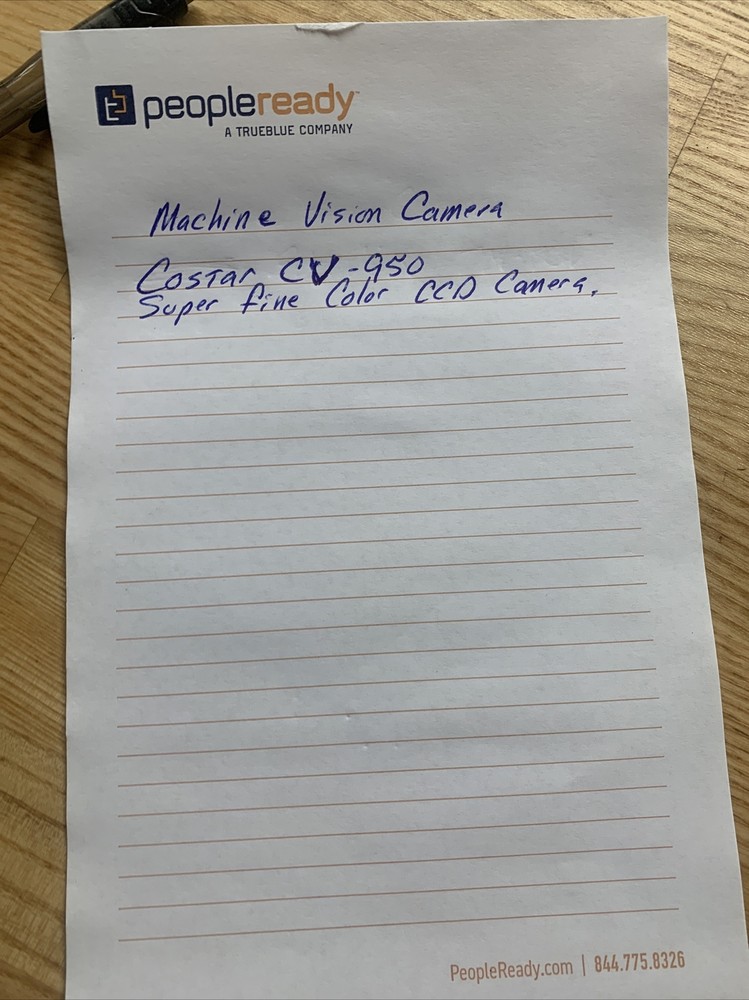 peopleready™
A TRUEBLUE COMPANY
Machine Vision Camera
Costar CV-950
Super fine Color CCD Camera.
PeopleReady.com | 844.775.8326